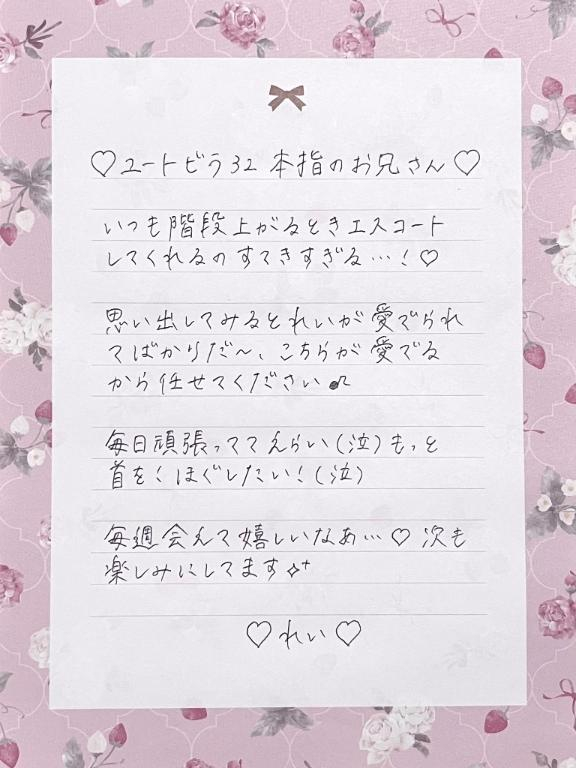 ♡ユートピラ32 本指のお兄さん♡
いつも階段上がるときエスコート
してくれるのすてきすぎる…！♡
思い出してみるとれいが愛でられ
てばかりだ〜、こちらが愛でる
から任せてください♪
毎日頑張っててえらい(泣)もっと
首を！ほぐしたい！(泣)
毎週会えて嬉しいなあ…♡次も
楽しみにしてます✧⁺
♡れい♡